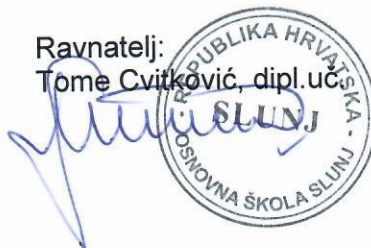 Ravnatelj:
Tome Cvitković, dipl.uč.
REPUBLIKA HRVATSKA -
SLUNJ
OSNOVNA ŠKOLA SLUNJ